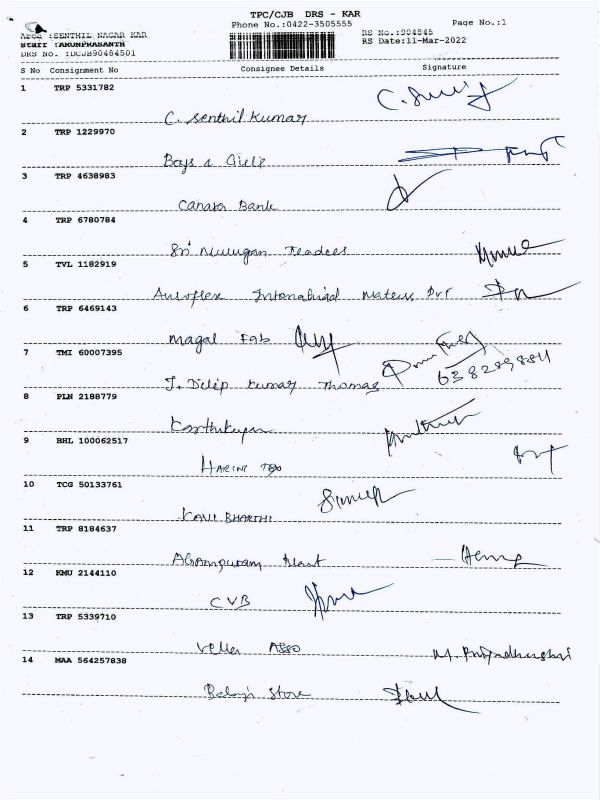 TPC/CJB DRS - KAR
Phone No.:0422-3505555 Page No.:1
Area :SENTHIL NAGAR KAR RS No.:904845
Staff :ARUNPRASANTH RS Date:11-Mar-2022
DRS No. :DCJB90484501
S No Consignment No Consignee Details Signature
1 TRP 5331782
C. Senthil Kumar
2 TRP 1229970
Boys &
3 TRP 4638983
Canara Bank
4 TRP 6780784
Sri Murugan Traders
5 TVL 1182919
Pvt
6 TRP 6469143
Magal Fab
7 TMI 60007395
6382898811
J. Dilip Kumar Thomas
8 PLN 2188779
Karthikeyan
9 BHL 100062517
HARINI Tex
10 TCG 50133761
KAVI BHARTHI
11 TRP 8184637
12 KMU 2144110
CVB
13 TRP 5339710
Vella Asso
14 MAA 564257838
Balaji Store